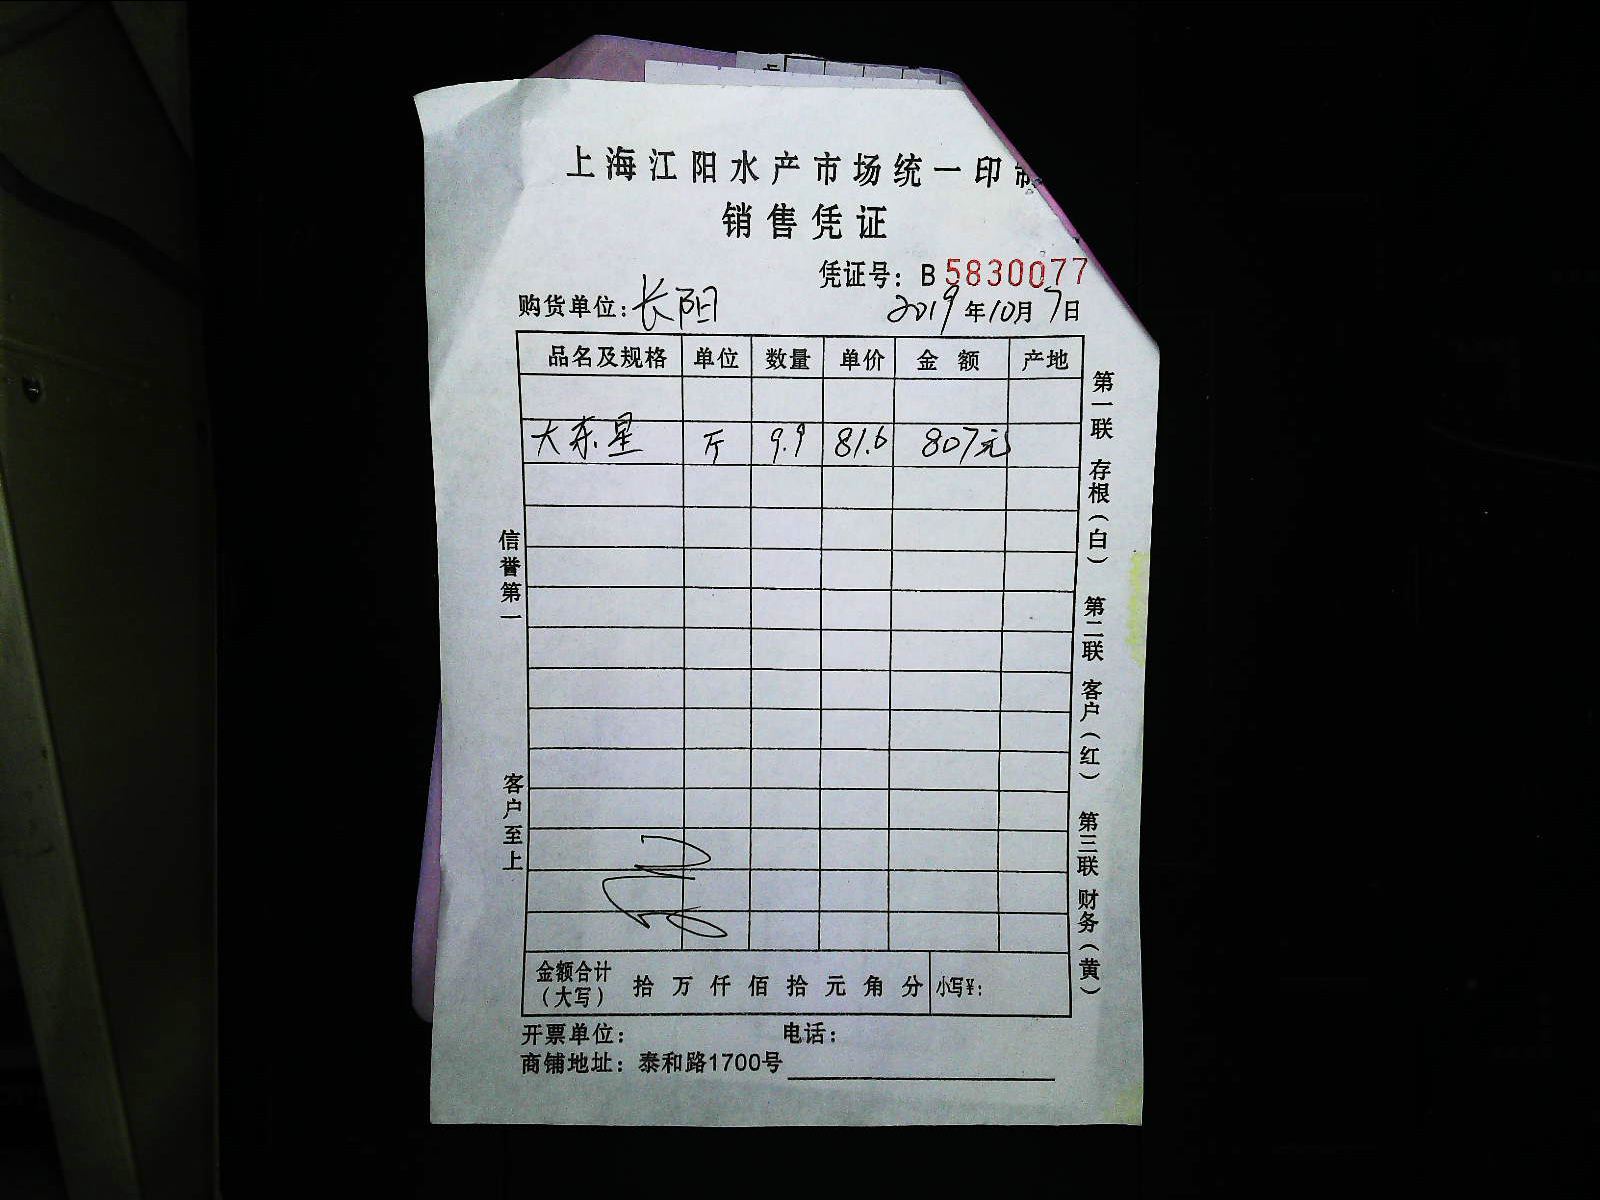 上海江阳水产市场统一印制
销售凭证
凭证号：B 5830077
购货单位：长阳 2019年10月7日
品名及规格 单位 数量 单价 金额 产地
大东星 斤 9.9 81.6 807元
信誉第一
客户至上
第一联 存根（白） 第二联 客户（红） 第三联 财务（黄）
金额合计（大写） 拾 万 仟 佰 拾 元 角 分 小写¥：
开票单位： 电话：
商铺地址：泰和路1700号